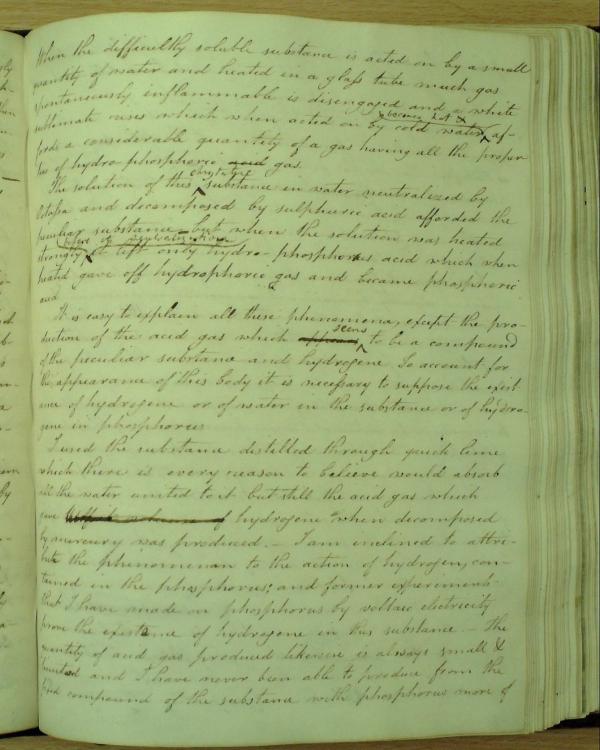 When the difficultly soluble substance is acted on by a small
quantity of water and heated in a glass tube much gas
spontaneously inflammable is disengaged and a white
sublimate rises which when acted on by cold water af-
becomes hot &
fords a considerable quantity of a gas having all the proper-
ties of hydro-phosphoric acid gas.
The solution of this substance in water neutralized by
Potassa and decomposed by sulphuric acid afforded the
peculiar substance - but when the solution was heated
before its neutralization
strongly it left only hydro-phosphorus acid which when
heated gave off hydrophoric gas and became phosphoric
acid
It is easy to explain all these phenomena, except the pro-
seems
duction of the acid gas which appears to be a compound
of the peculiar substance and hydrogene. To account for
the appearance of this body it is necessary to suppose the exist
ence of hydrogene or of water in the substance or of hydro-
gene in phosphorus
I used the substance distilled through quick lime
which there is every reason to believe would absorb
all the water united to it but still the acid gas which
gave of hydrogene when decomposed
by mercury was produced. - I am inclined to attri-
bute the phenomenon to the action of hydrogen, con-
tained in the phosphorus; and former experiments
that I have made on phosphorus by voltaic electricity
prove the existence of hydrogene in this substance - The
quantity of acid gas produced likewise is always small &
limited and I have never been able to produce from the
compound of the substance with phosphorus more of